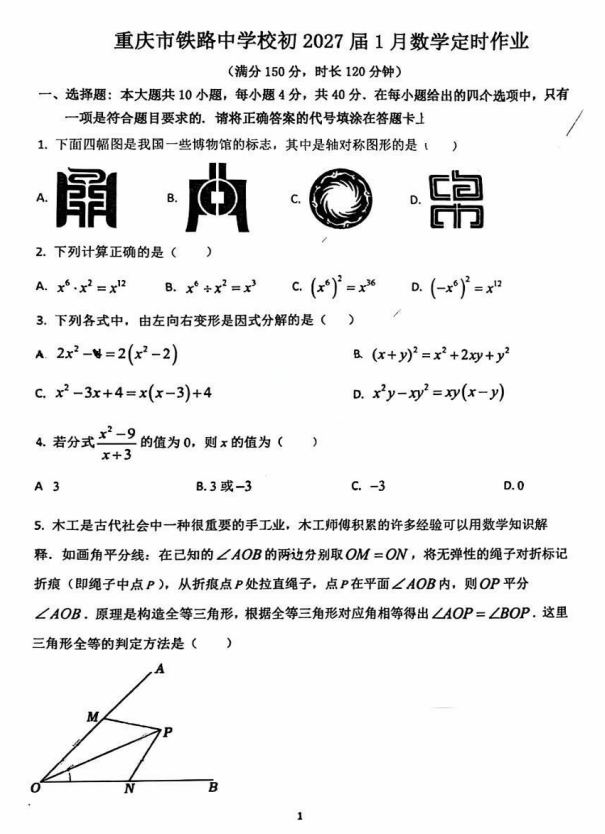 重庆市铁路中学校初 2027 届 1 月数学定时作业
（满分 150 分，时长 120 分钟）
一、选择题：本大题共 10 小题，每小题 4 分，共 40 分．在每小题给出的四个选项中，只有
一项是符合题目要求的．请将正确答案的代号填涂在答题卡上
1. 下面四幅图是我国一些博物馆的标志，其中是轴对称图形的是（ ）
A. B. C. D.
2. 下列计算正确的是（ ）
A. x⁶·x²=x¹² B. x⁶÷x²=x³ C. (x⁶)²=x³⁶ D. (−x⁶)²=x¹²
3. 下列各式中，由左向右变形是因式分解的是（ ）
A 2x²−4=2(x²−2) B. (x+y)²=x²+2xy+y²
C. x²−3x+4=x(x−3)+4 D. x²y−xy²=xy(x−y)
4. 若分式 (x²−9)/(x+3) 的值为 0，则 x 的值为（ ）
A 3 B. 3 或−3 C. −3 D. 0
5. 木工是古代社会中一种很重要的手工业，木工师傅积累的许多经验可以用数学知识解
释．如画角平分线：在己知的∠AOB的两边分别取OM=ON，将无弹性的绳子对折标记
折痕（即绳子中点P），从折痕点P处拉直绳子，点P在平面∠AOB内，则OP平分
∠AOB．原理是构造全等三角形，根据全等三角形对应角相等得出∠AOP=∠BOP．这里
三角形全等的判定方法是（ ）
A
M
P
O
N
B
1